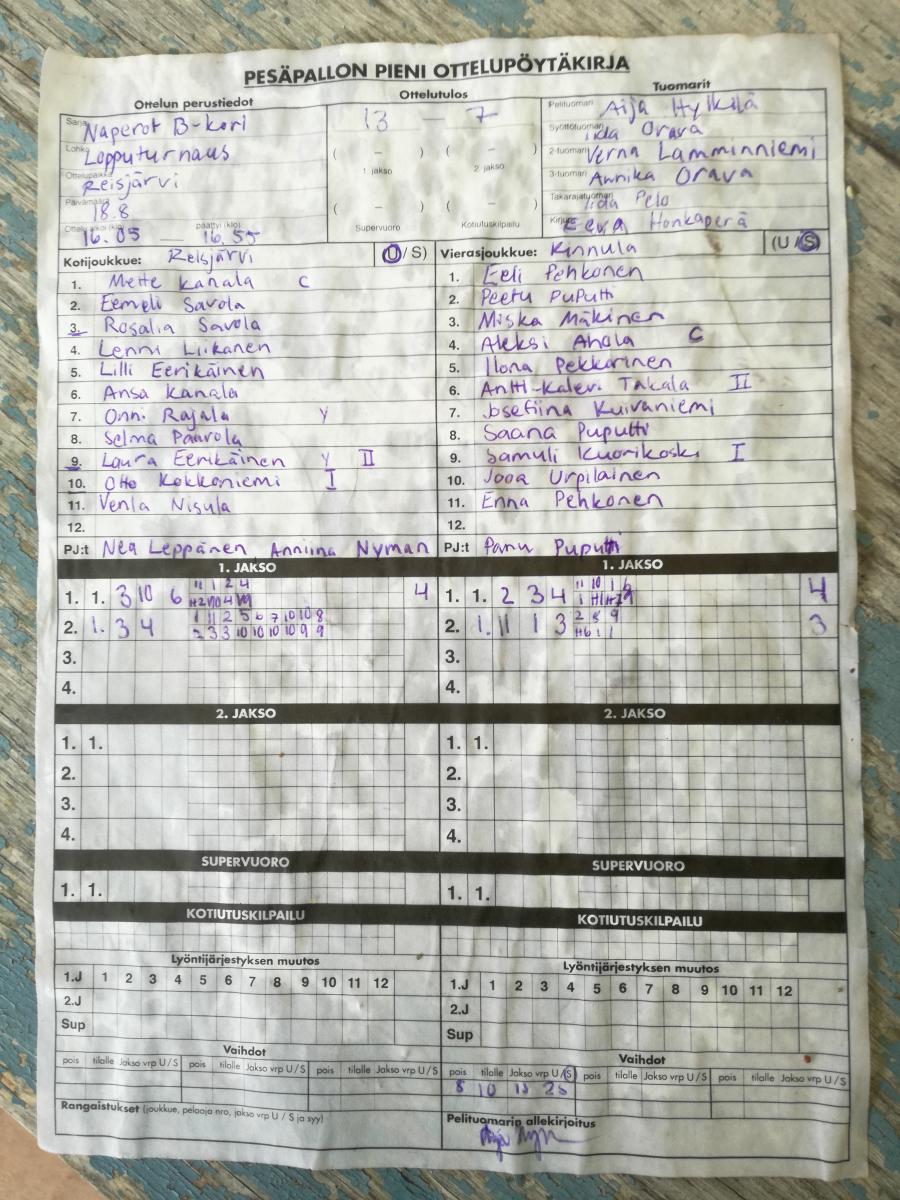 PESÄPALLON PIENI OTTELUPÖYTÄKIRJA
Ottelun perustiedot
Ottelutulos
Tuomarit
Sarja Naperot B-kori
13 — 7
Pelituomari Aija Hylkilä
Lohko Lopputurnaus
( – ) ( – )
Syöttötuomari Iida Orava
1. jakso 2. jakso
2-tuomari Verna Lamminniemi
Ottelupaikka Reisjärvi
3-tuomari Annika Orava
Päivämäärä 18.8
( – ) ( – )
Takarajatuomari Iida Pelo
Ottelu alkoi (klo) 16.05 — päättyi (klo) 16.55
Supervuoro Kotiutuskilpailu
Kirjuri Eeva Honkaperä
Kotijoukkue: Reisjärvi (U / S)
1. Mette Kanala C
2. Eemeli Savola
3. Rosalia Savola
4. Lenni Liikanen
5. Lilli Eerikäinen
6. Ansa Kanala
7. Onni Rajala Y
8. Selma Paavola
9. Laura Eerikäinen Y II
10. Otto Kokkoniemi I
11. Venla Nisula
12.
PJ:t Nea Leppänen Anniina Nyman
Vierasjoukkue: Kinnula (U / S)
1. Eeli Pehkonen
2. Peetu Puputti
3. Miska Mäkinen
4. Aleksi Ahola C
5. Ilona Pekkarinen
6. Antti-Kalevi Takala II
7. Josefiina Kuivaniemi
8. Saana Puputti
9. Samuli Kuorikoski I
10. Jooa Urpilainen
11. Enna Pehkonen
12.
PJ:t Panu Puputti
1. JAKSO
1. 1. 3 10 6 11 1 2 4 4
2. 1. 3 4 1 11 2 5 6 7 10 10 8
2 3 3 10 10 10 10 9 9
3.
4.
1. JAKSO
1. 1. 2 3 4 11 10 1 4
2. 1. 11 1 3 2 5 9 3
3.
4.
2. JAKSO
1. 1.
2.
3.
4.
2. JAKSO
1. 1.
2.
3.
4.
SUPERVUORO
1. 1.
SUPERVUORO
1. 1.
KOTIUTUSKILPAILU
KOTIUTUSKILPAILU
Lyöntijärjestyksen muutos
1.J 1 2 3 4 5 6 7 8 9 10 11 12
2.J
Sup
Lyöntijärjestyksen muutos
1.J 1 2 3 4 5 6 7 8 9 10 11 12
2.J
Sup
Vaihdot
pois tilalle Jakso vrp U / S pois tilalle Jakso vrp U / S pois tilalle Jakso vrp U / S
Vaihdot
pois tilalle Jakso vrp U / S pois tilalle Jakso vrp U / S pois tilalle Jakso vrp U / S
8 10 1J 2S
Rangaistukset (joukkue, pelaaja nro, jakso vrp U / S ja syy)
Pelituomarin allekirjoitus